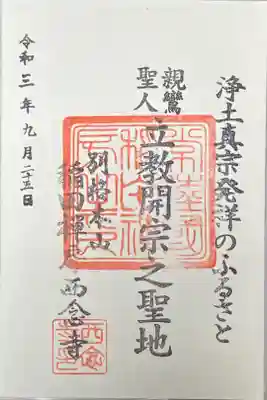 浄土真宗発祥のふるさと
親鸞
聖人
立教開宗之聖地
別格本山
稲田禅房西念寺
令和三年九月二十五日